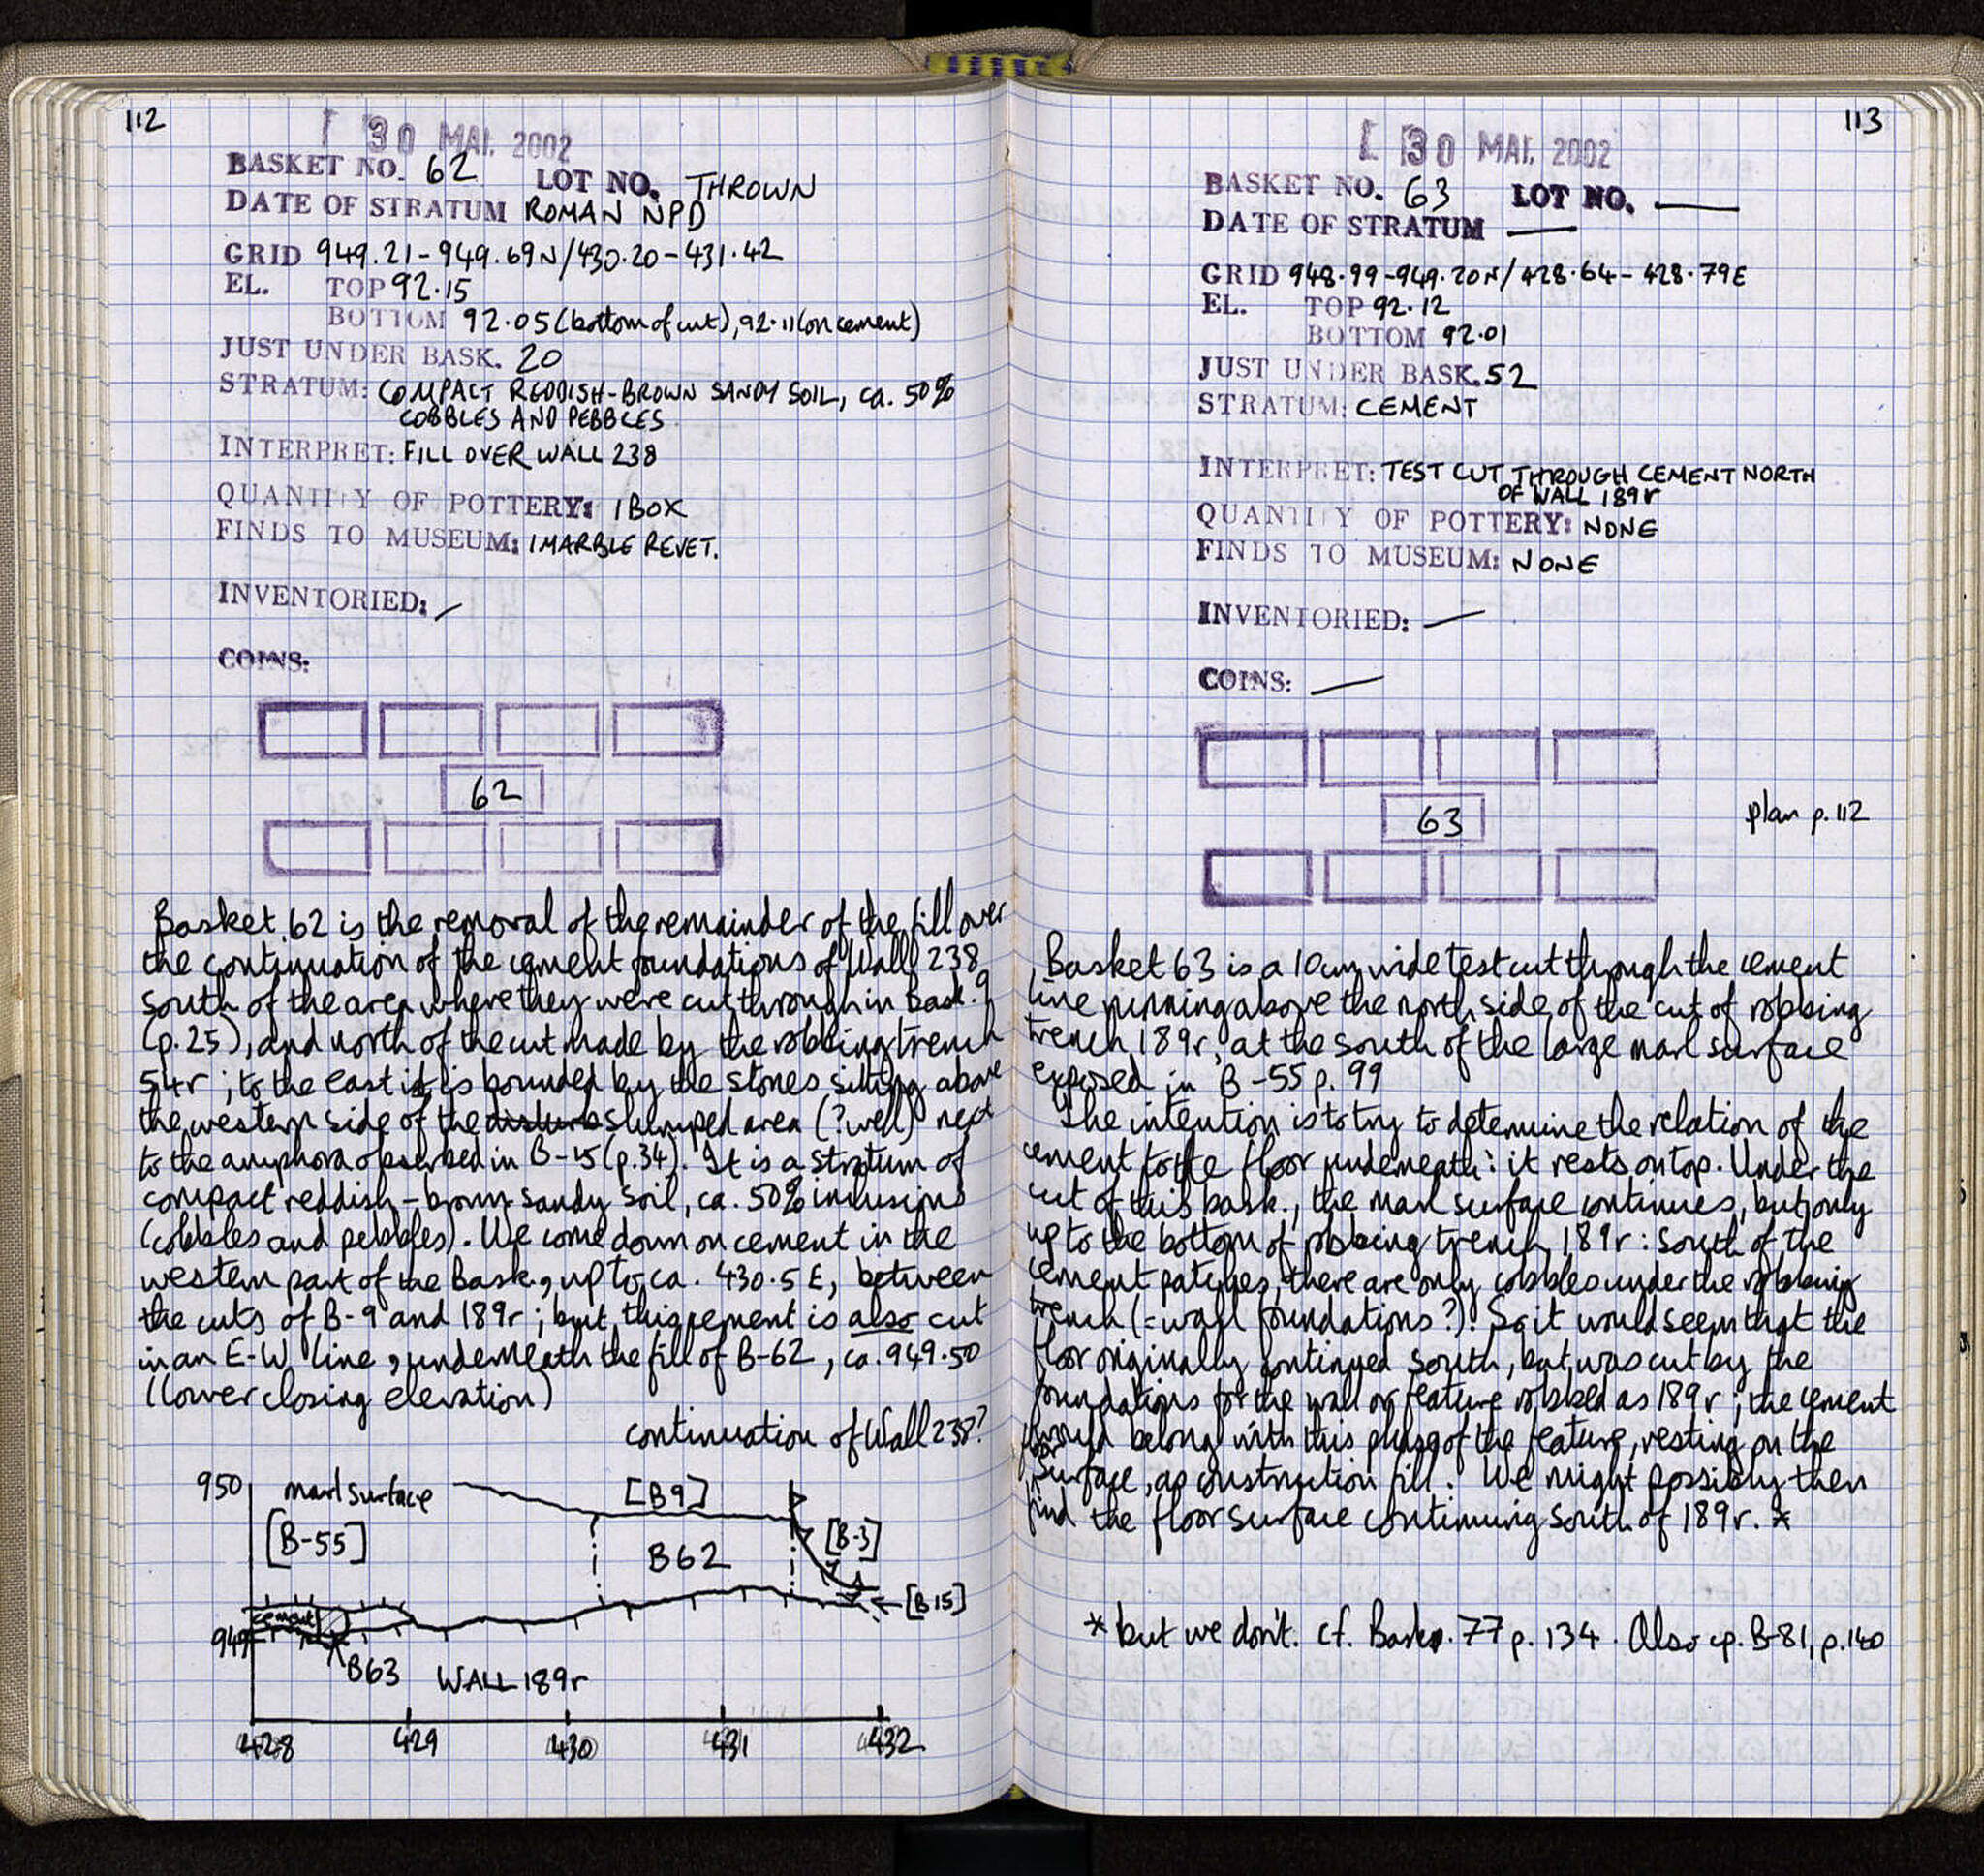 112
30 MAI. 2002
BASKET NO. 62 LOT NO. THROWN
DATE OF STRATUM ROMAN NPD
GRID 949.21-949.69N/430.20-431.42
EL. TOP 92.15
BOTTOM 92.05 (bottom of cut), 92.11 (on cement)
JUST UNDER BASK. 20
STRATUM: COMPACT REDDISH-BROWN SANDY SOIL, ca. 50%
COBBLES AND PEBBLES
INTERPRET: FILL OVER WALL 238
QUANTITY OF POTTERY: 1 BOX
FINDS TO MUSEUM: 1 MARBLE REVET.
INVENTORIED: —
COINS:
62
Basket 62 is the removal of the remainder of the fill over
the continuation of the cement foundations of Wall 238
south of the area where they were cut through in Bask. 9
(p.25), and north of the cut made by the robbing trench
54r; to the east it is bounded by the stones sitting above
the western side of the disturb slumped area (?well) next
to the amphora observed in B-15 (p.34). It is a stratum of
compact reddish-brown sandy soil, ca. 50% inclusions
(cobbles and pebbles). We come down on cement in the
western part of the Bask., up to ca. 430.5 E, between
the cuts of B-9 and 189r; but this cement is also cut
in an E-W line, underneath the fill of B-62, ca. 949.50
(lower closing elevation)
continuation of Wall 238?
950 marl surface [B9]
[B-55] B62 [B-3]
[B15]
cement
949
B63 WALL 189r
428 429 430 431 432
113
30 MAI. 2002
BASKET NO. 63 LOT NO. —
DATE OF STRATUM —
GRID 948.99-949.20N/428.64-428.79E
EL. TOP 92.12
BOTTOM 92.01
JUST UNDER BASK. 52
STRATUM: CEMENT
INTERPRET: TEST CUT THROUGH CEMENT NORTH
OF WALL 189r
QUANTITY OF POTTERY: NONE
FINDS TO MUSEUM: NONE
INVENTORIED: —
COINS: —
63
plan p. 112
Basket 63 is a 10cm wide test cut through the cement
line running above the north side of the cut of robbing
trench 189r, at the south of the large marl surface
exposed in B-55 p. 99
The intention is to try to determine the relation of the
cement to the floor underneath: it rests on top. Under the
cut of this bask., the marl surface continues, but only
up to the bottom of robbing trench 189r: south of the
cement patches, there are only cobbles under the robbing
trench (=wall foundations?). So it would seem that the
floor originally continued south, but was cut by the
foundations for the wall or feature robbed as 189r; the cement
would belong with this phase of the feature, resting on the
floor surface, as construction fill. We might possibly then
find the floor surface continuing south of 189r. *
* but we don't. cf. Bask. 77 p. 134. Also cp. B-81, p.140